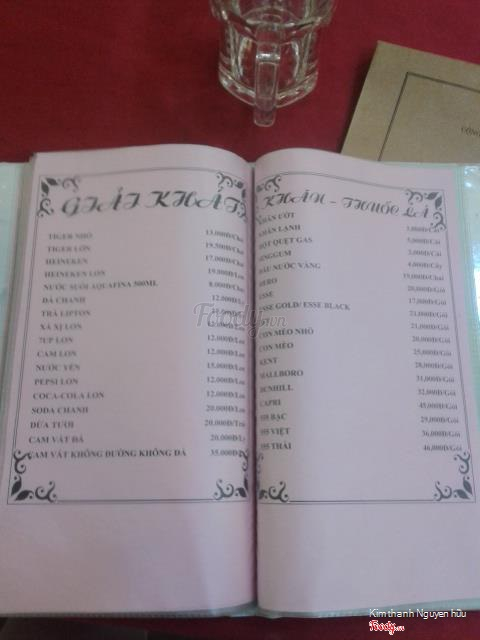 GIẢI KHÁT
TIGER NHỎ 13.000Đ/Chai
TIGER LỚN 19.500Đ/Chai
HEINEKEN 17.000Đ/Chai
HEINEKEN LON 19.000Đ/Lon
NƯỚC SUỐI AQUAFINA 500ML 8.000Đ/Chai
ĐÁ CHANH 12.000Đ/
TRÀ LIPTON
XÁ XỊ LON 12.000Đ/Lon
7UP LON 12.000Đ/Lon
CAM LON 12.000Đ/Lon
NƯỚC YẾN 15.000Đ/Lon
PEPSI LON 12.000Đ/Lon
COCA-COLA LON 12.000Đ/Lon
SODA CHANH 20.000Đ/Lon
DỪA TƯƠI 20.000Đ/Trái
CAM VẮT ĐÁ 20.000Đ/L
CAM VẮT KHÔNG ĐƯỜNG KHÔNG ĐÁ 35.000Đ
KHĂN - THUỐC LÁ
KHĂN ƯỚT 3,000Đ/Cái
KHĂN LẠNH 5,000Đ/Cái
HỘT QUẸT GAS 3,000Đ/Cái
SINGGUM 4,000Đ/Cây
DẦU NƯỚC VÀNG 35,000Đ/Chai
HERO 20,000Đ/Gói
ESSE 17,000Đ/Gói
ESSE GOLD/ ESSE BLACK 21,000Đ/Gói
CON MÈO NHỎ 21,000Đ/Gói
CON MÈO 20,000Đ/Gói
KENT 25,000Đ/Gói
MALLBORO 28,000Đ/Gói
DUNHILL 31,000Đ/Gói
CAPRI 32,000Đ/Gói
555 BẠC 45,000Đ/Gói
555 VIỆT 29,000Đ/Gói
555 THÁI 36,000Đ/Gói
46,000Đ/Gói
Foody.vn
Kim thanh Nguyen hữu
Foody.vn